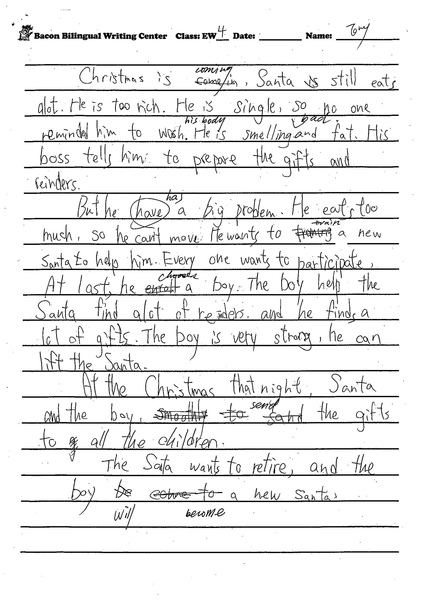 Bacon Bilingual Writing Center Class: EW 4 Date: Name: Tony
coming
Christmas is come in, Santa is still eats
alot. He is too rich. He is single, so no one
his body bad
reminded him to wash. He is smelling and fat. His
boss tells him to prepare the gifts and
reinders.
has
But he have a big problem. He eats too
train
much, so he can't move. He wants to a new
Santa to help him. Every one wants to participate,
chooses
At last, he a boy. The boy help the
Santa find alot of reiders. and he finds a
lot of gifts. The boy is very strong, he can
lift the Santa.
At the Christmas that night, Santa
send
and the boy, smoothly to sand the gifts
to all the children.
The Sata wants to retire, and the
boy be come to a new Santa.
will become